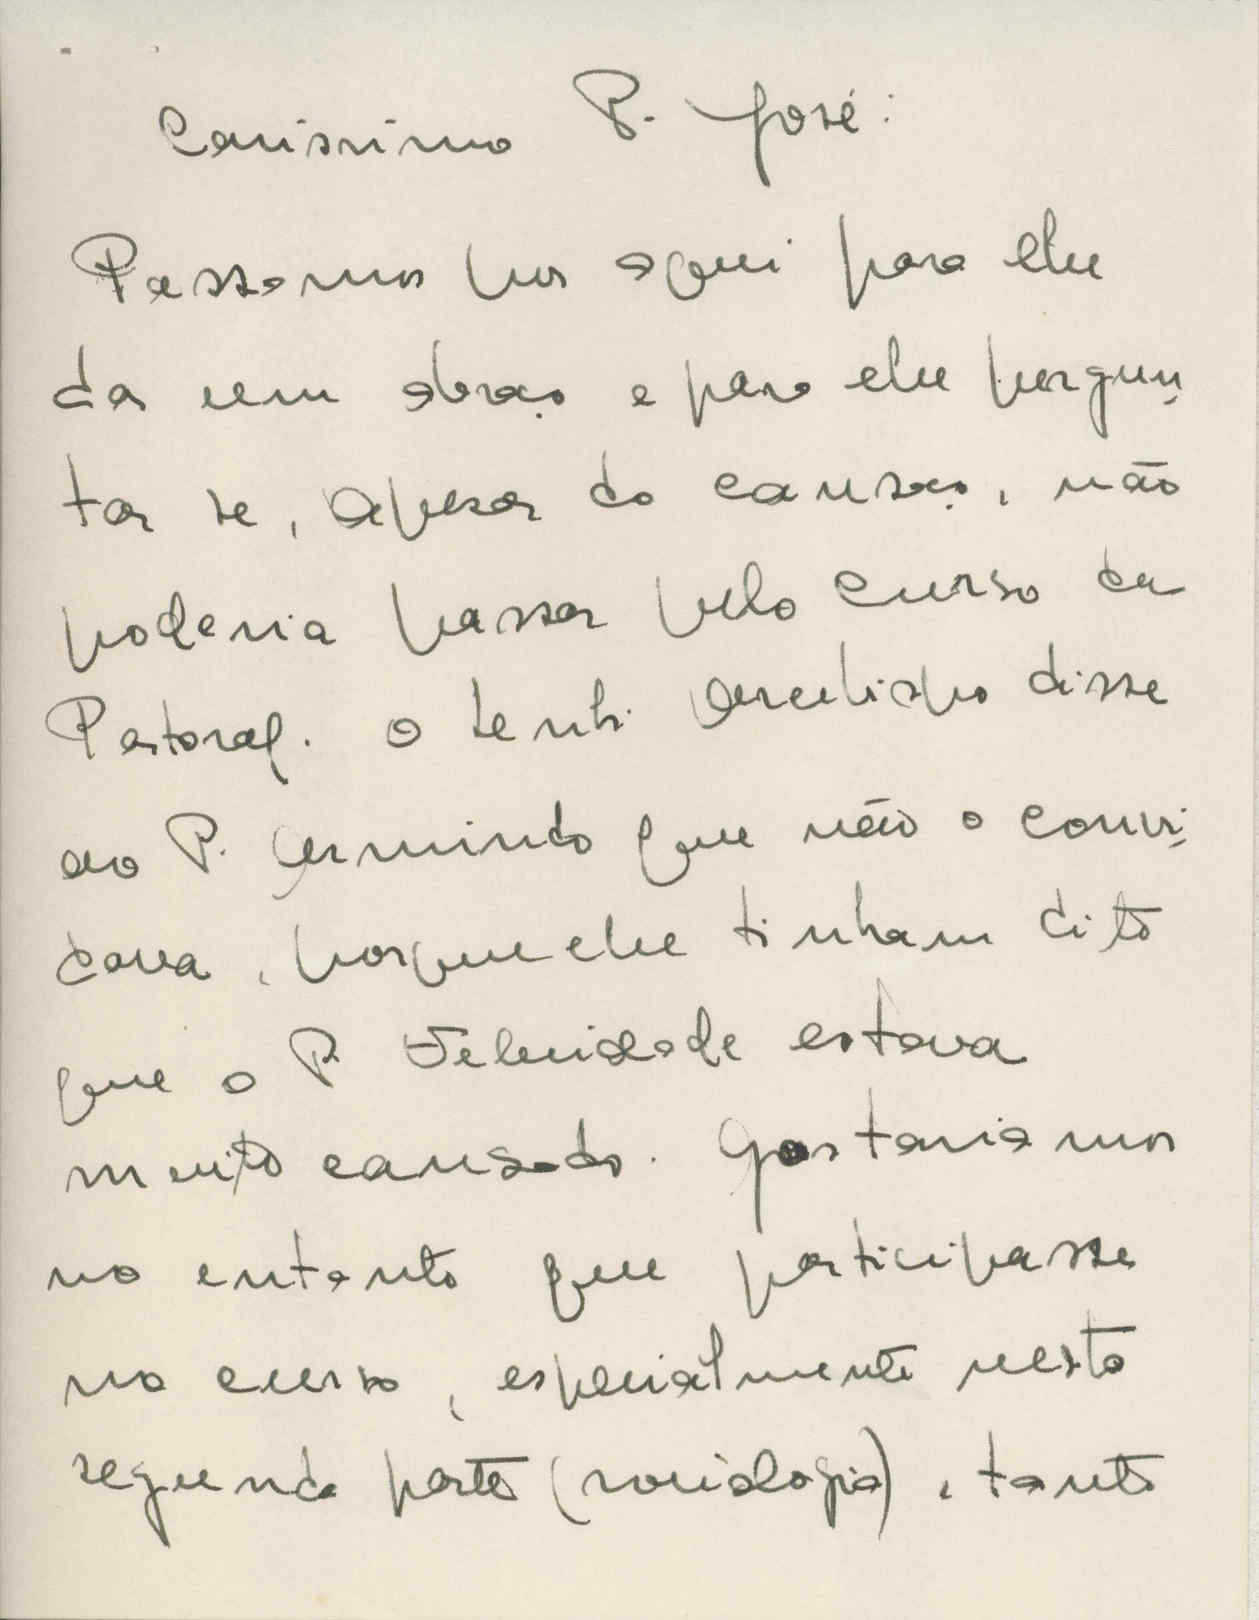 Caríssimo P. José:
Passamos por aqui para lhe
dar um abraço e para lhe pergun
tar se, apesar do cansaço, não
poderia passar pelo curso de
Pastoral. O Senhor Arcebispo disse
ao P. Armindo que não o convi
dava, porque lhe tinham dito
que o P. Felicidade estava
muito cansado. Gostaríamos
no entanto que participasse
no curso, especialmente nesta
segunda parte (sociologia), tanto